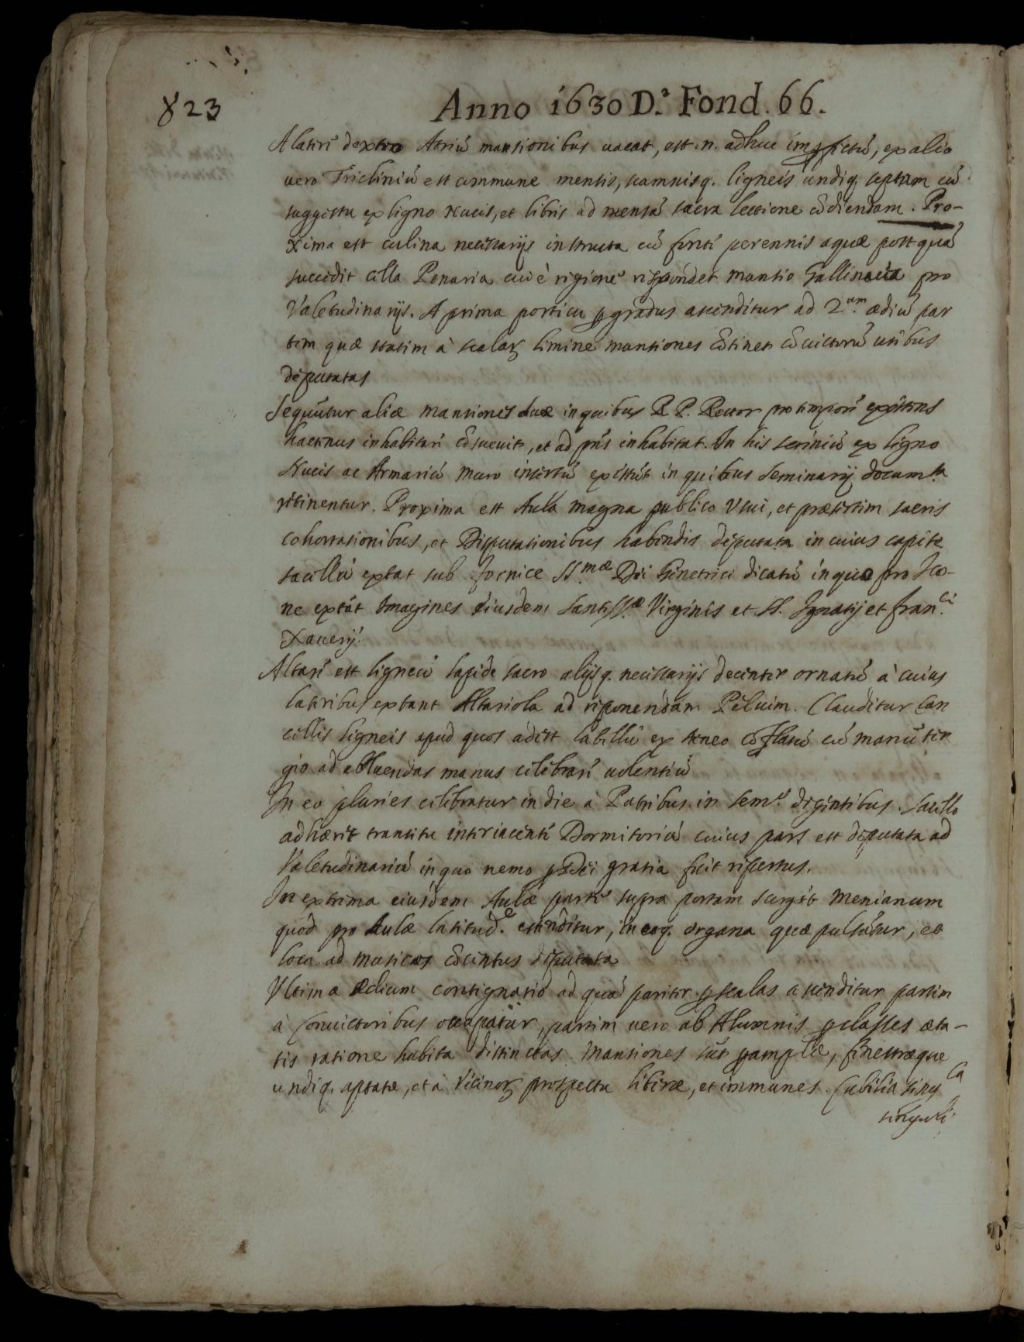 823
Anno 1630 D.ª Fond. 66.
A lateri dextro Atriũ mansionibus uacat, est .n. adhuc impfectũ, ex alio
uero Tricliniũ est commune mensis, scamnisq. ligneis undiq. septum cũ
suggestu ex ligno Nucis, et libris ad mensã sacra lectione cõdiendam. Pro-
xima est culina necessarijs instructa cũ fonte perennis aquæ post quã
succedit cella Penaria cui è regione respondet mansio Gallinacea pro
Valetudinarijs. A prima porticu p gradus ascenditur ad 2.am ædiũ par
tem quæ statim à scalaɀ limine mansiones cõtinet cõuictorũ usibus
deputatas
Sequũtur aliæ mansiones duæ in quibus R. P. Rector pro tempore existens
hactenus inhabitare cõsueuit, et ad pñs inhabitat. In his scriniũ ex ligno
Nucis ac Armariũ muro insertũ existũt in quibus Seminarij docum.ta
retinentur. Proxima est Aula magna publico Vsui, et præsertim sacris
cohortationibus, et Disputationibus habendis deputata in cuius capite
sacellũ extat sub fornice SS.mæ Dei Genetrici dicatũ in quo pro Ico-
ne extãt Imagines eiusdem Santiss.æ Virginis et SS. Ignatij et Fran.ci
Xauerij.
Altare est ligneũ lapide sacro alijsq. necessarijs decenter ornatũ à cuius
lateribus extant Altariola ad reponendam Peluim. Clauditur Can
cellis ligneis apud quos adest labellũ ex Aeneo cõflatũ cũ manuter
gio ad abluendas manus celebrare uolentiũ
In eo pluries celebratur in die à Patribus in Sem.º degentibus. Sacello
adhæret transitu interiacente Dormitoriũ cuius pars est deputata ad
Valetudinariũ in quo nemo p Dei gratia fuit repertus.
In extrema eiusdem Aulæ parte supra portam surgit Menianum
quod pro Aulæ latitud.e extenditur, in eoq. organa quæ pulsãtur, et
loca ad musicos cõcentus deputata
Vltima Aedium contignatio ad quã pariter p scalas ascenditur partim
à Conuictoribus occupatur, partim uero ab Alumnis p classes æta-
tis ratione habita distinctas. Mansiones sũt perampłæ, fenestræque
undiq. aptatæ, et à Vicinoɀ prospectu liberæ, et immunes. Cubilia sing.la
singuli